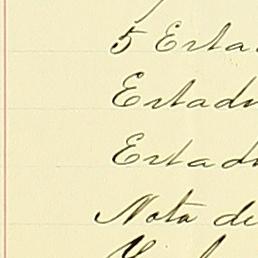 5 Esta
Estad
Estad
Nota de